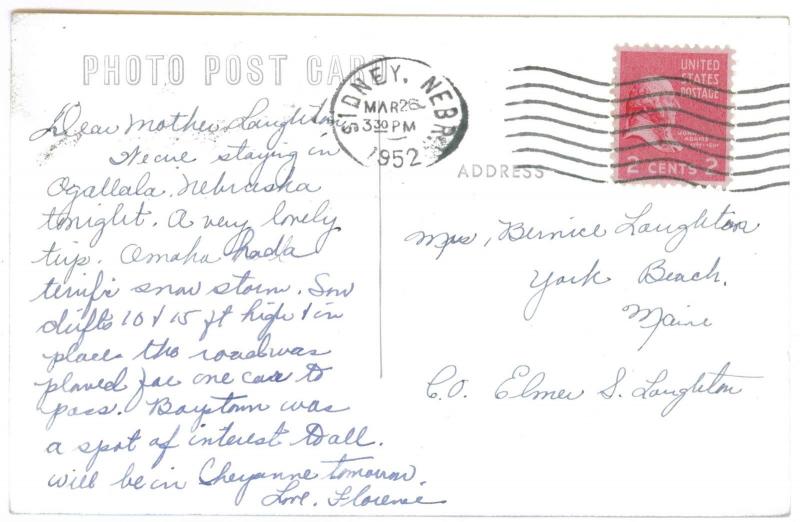 PHOTO POST CARD
SIDNEY, NEBR.
MAR 26
3 30 PM
1952
UNITED
STATES
POSTAGE
JOHN
ADAMS
2 CENTS 2
ADDRESS
Dear Mother Laughton,
We're staying in
Ogallala, Nebraska
tonight. A very lovely
trip. Omaha had a
terrific snow storm. Snow
drifts 10 & 15 ft high & in
places the road was
plowed for one car to
pass. Boystown was
a spot of interest to all.
will be in Cheyanne tomorrow.
Love, Florence
Mrs, Bernice Laughton
York Beach.
Maine
C.O. Elmer S. Laughton